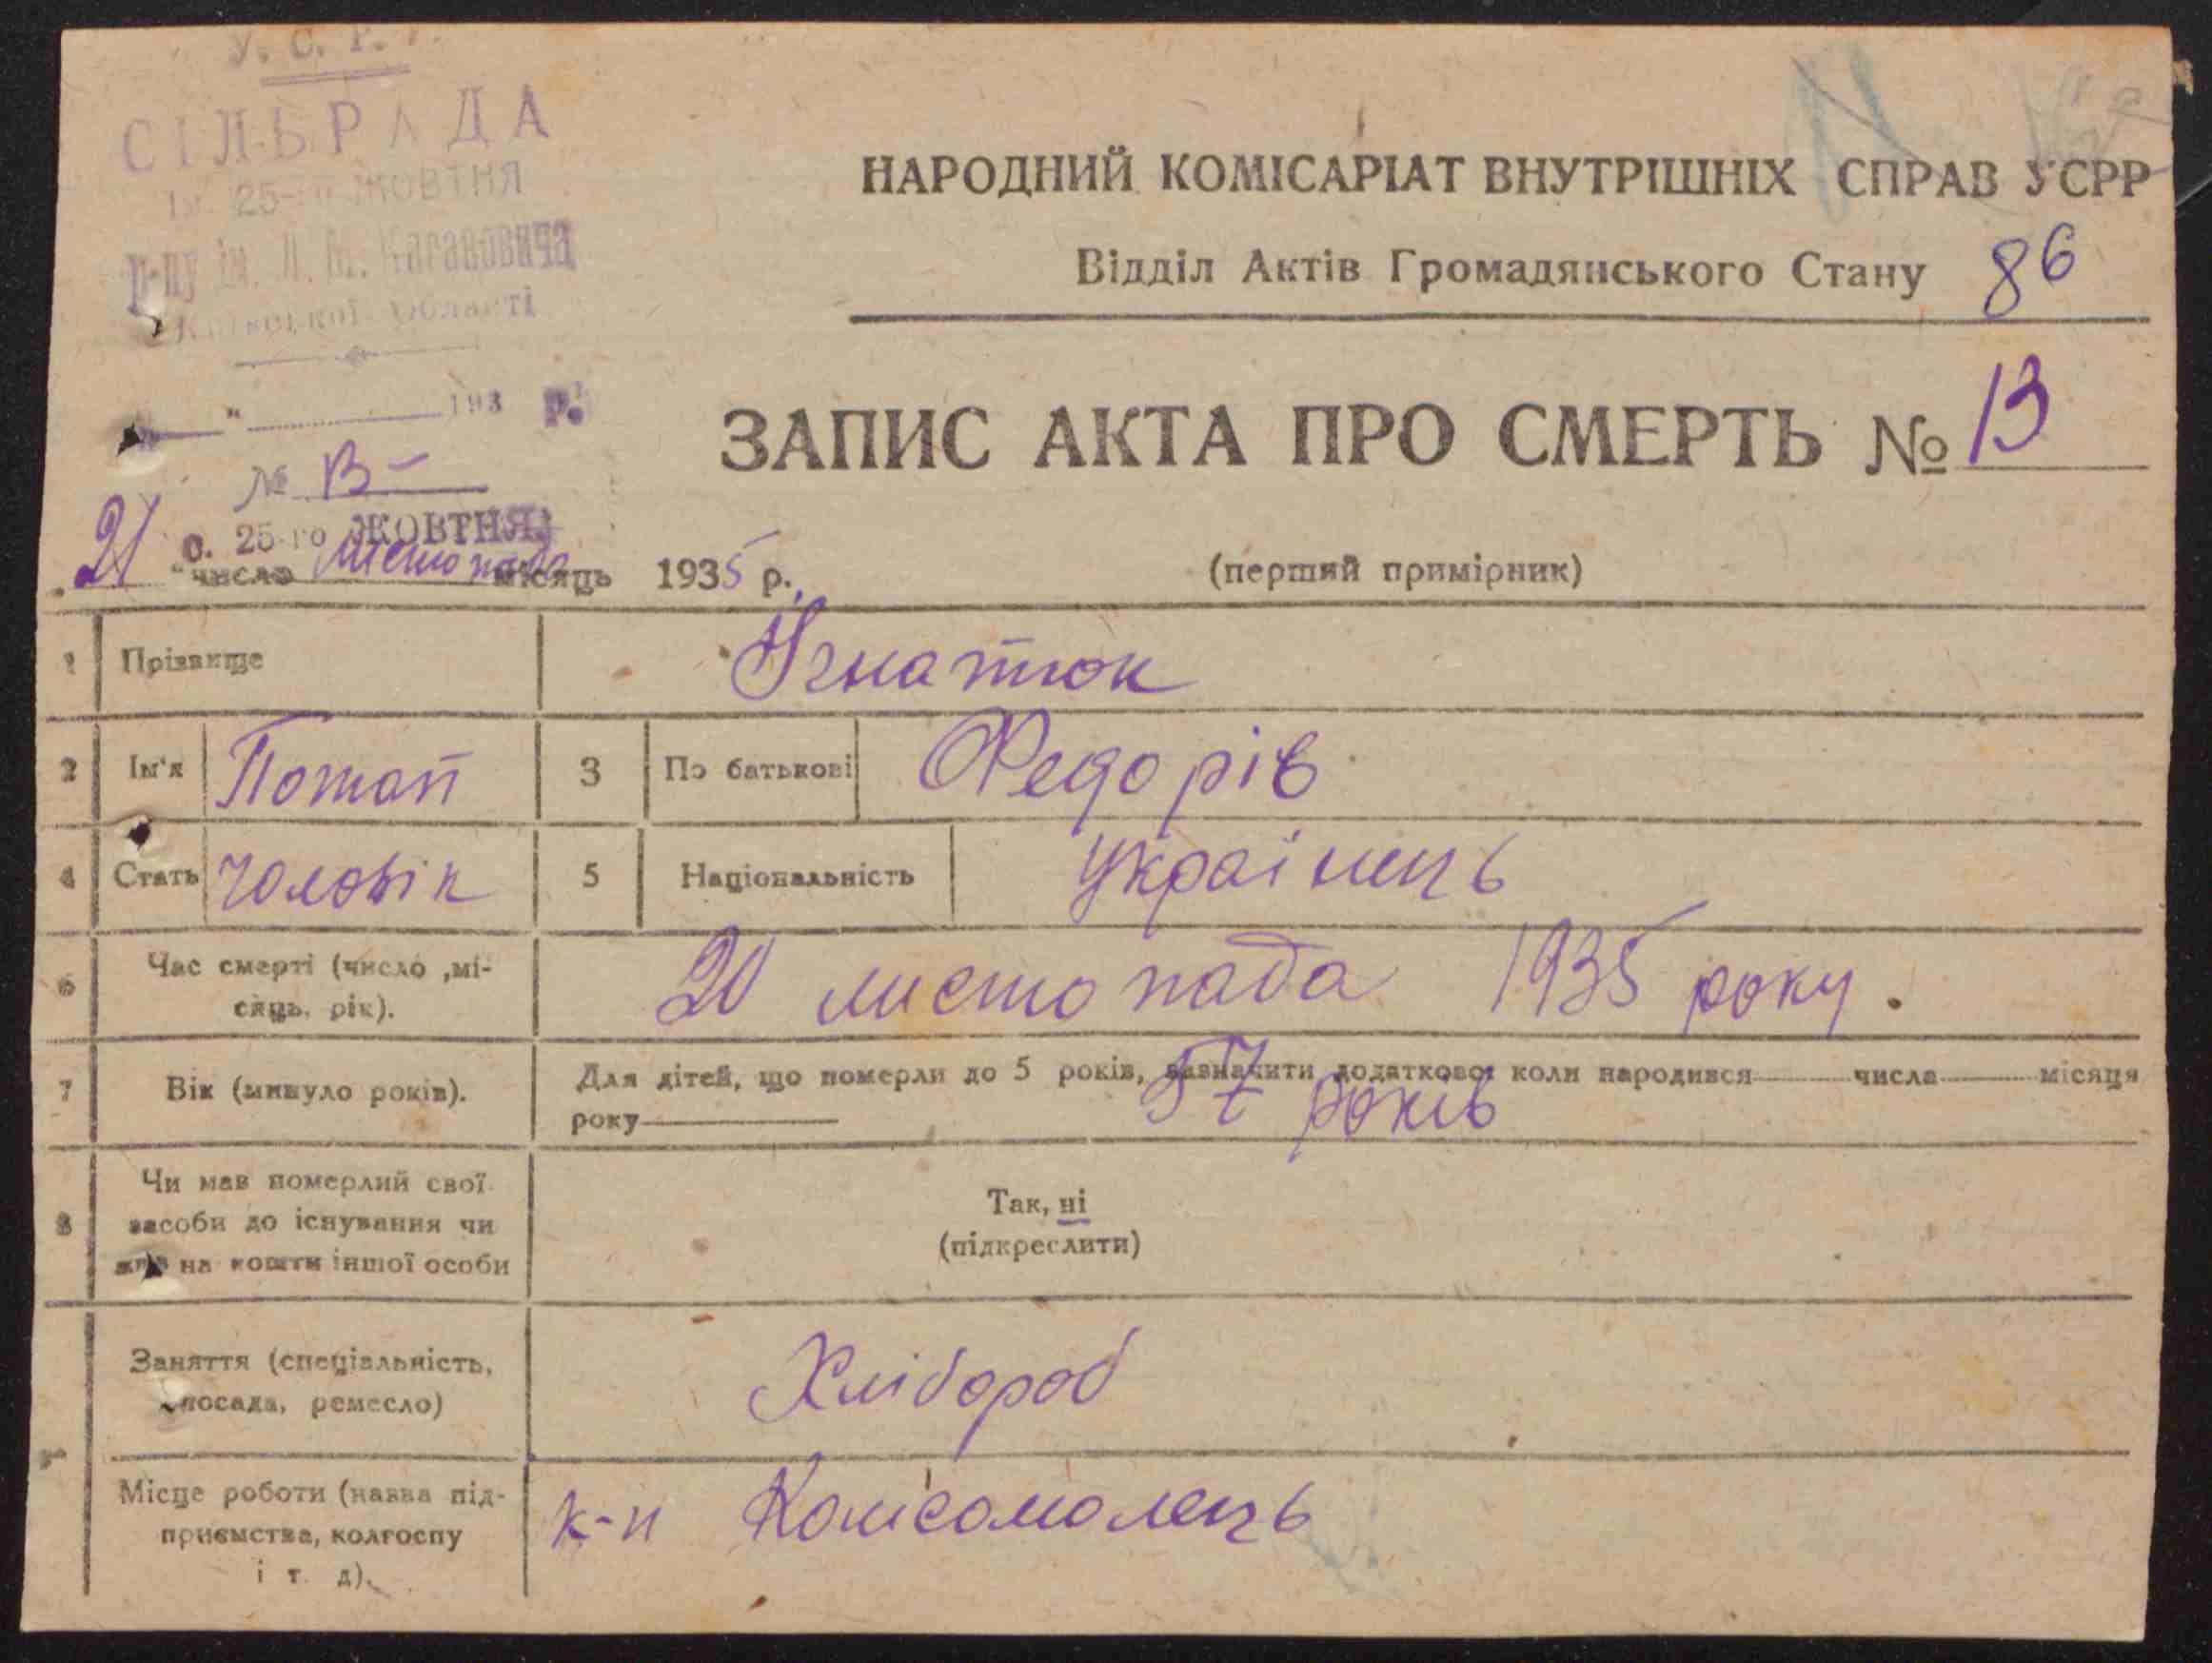 У. С. Р. Р.
СІЛЬРАДА
ім. 25-го ЖОВТНЯ
р-ну ім. Л. М. Кагановича
Київської Області
" 193 р.
№ 13-
с. 25-го ЖОВТНЯ
НАРОДНИЙ КОМІСАРІАТ ВНУТРІШНІХ СПРАВ УСРР
Відділ Актів Громадянського Стану 86
ЗАПИС АКТА ПРО СМЕРТЬ № 13
„21 "число листопада місяць 1935 р.
(перший примірник)
1 Прізвище Ігнатюк
2 Ім'я Потап 3 По батькові Федорів
4 Стать чоловік 5 Національність українець
6 Час смерті (число ,мі-
сяць, рік).
20 листопада 1935 року.
7 Вік (минуло років).
Для дітей, що померли до 5 років, зазначити додатково: коли народився числа місяця
року
57 років
8 Чи мав померлий свої
засоби до існування чи
жив на кошти іншої особи
Так, ні
(підкреслити)
Заняття (спеціальність,
посада, ремесло)
Хлібороб
Місце роботи (назва під-
приємства, колгоспу
і т. д).
к-п Комсомолець